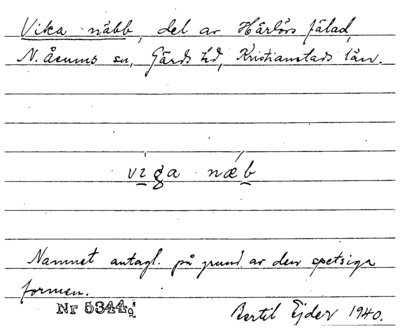 Vika näbb, del av Härlövs fälad,
N. Åsums sn, Gärds hd, Kristianstads län.
viga næb
Namnet antagl. på grund av den spetsiga
formen.
Nr 5344
Bertil Ejder 1940.